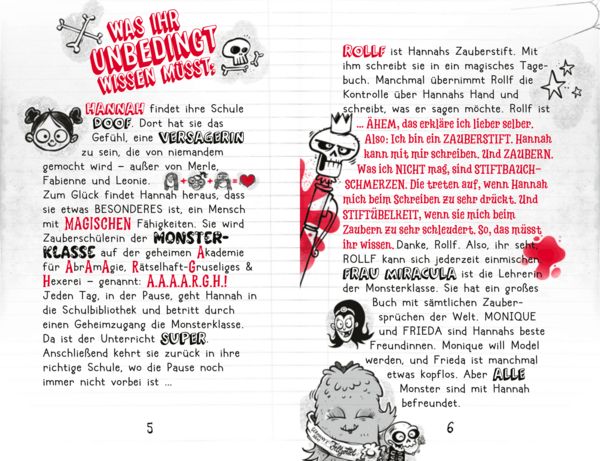 WAS IHR
UNBEDINGT
WISSEN MÜSST:
HANNAH findet ihre Schule
DOOF. Dort hat sie das
Gefühl, eine VERSAGERIN
zu sein, die von niemandem
gemocht wird – außer von Merle,
Fabienne und Leonie.
Zum Glück findet Hannah heraus, dass
sie etwas BESONDERES ist, ein Mensch
mit MAGISCHEN Fähigkeiten. Sie wird
Zauberschülerin der MONSTER-
KLASSE auf der geheimen Akademie
für AbrAmAgie, Rätselhaft-Gruseliges &
Hexerei – genannt: A.A.A.A.R.G.H.!
Jeden Tag, in der Pause, geht Hannah in
die Schulbibliothek und betritt durch
einen Geheimzugang die Monsterklasse.
Da ist der Unterricht SUPER.
Anschließend kehrt sie zurück in ihre
richtige Schule, wo die Pause noch
immer nicht vorbei ist ...
5
ROLLF ist Hannahs Zauberstift. Mit
ihm schreibt sie in ein magisches Tage-
buch. Manchmal übernimmt Rollf die
Kontrolle über Hannahs Hand und
schreibt, was er sagen möchte. Rollf ist
... ÄHEM, das erkläre ich lieber selber.
Also: Ich bin ein ZAUBERSTIFT. Hannah
kann mit mir schreiben. Und ZAUBERN.
Was ich NICHT mag, sind STIFTBAUCH-
SCHMERZEN. Die treten auf, wenn Hannah
mich beim Schreiben zu sehr drückt. Und
STIFTÜBELKEIT, wenn sie mich beim
Zaubern zu sehr schleudert. So, das müsst
ihr wissen. Danke, Rollf. Also, ihr seht,
ROLLF kann sich jederzeit einmischen.
FRAU MIRACULA ist die Lehrerin
der Monsterklasse. Sie hat ein großes
Buch mit sämtlichen Zauber-
sprüchen der Welt. MONIQUE
und FRIEDA sind Hannahs beste
Freundinnen. Monique will Model
werden, und Frieda ist manchmal
etwas kopflos. Aber ALLE
Monster sind mit Hannah
befreundet.
6